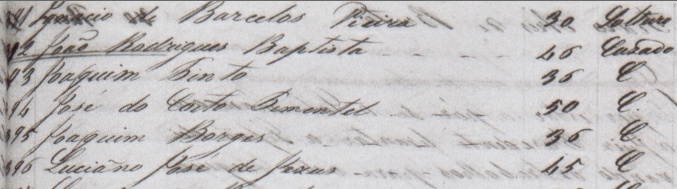 91 Ignacio de Barcelos Vieira 30 Soltaro
92 João Rodrigues Baptista 46 Casado
93 Joaquim Pinto 36 C.
94 José do Couto Pimentel 50 C.
395 Joaquim Borges 36 C
396 Luciano José de Jezus 45 C